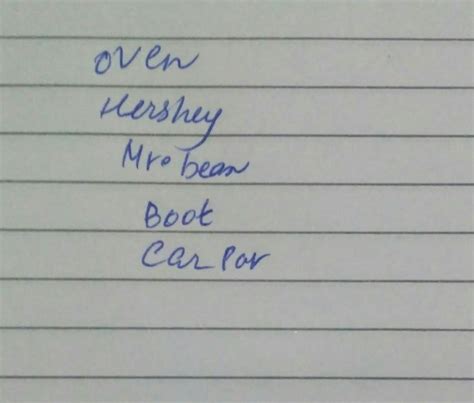 oven
Hershey
Mr. bean
Book
Car Par